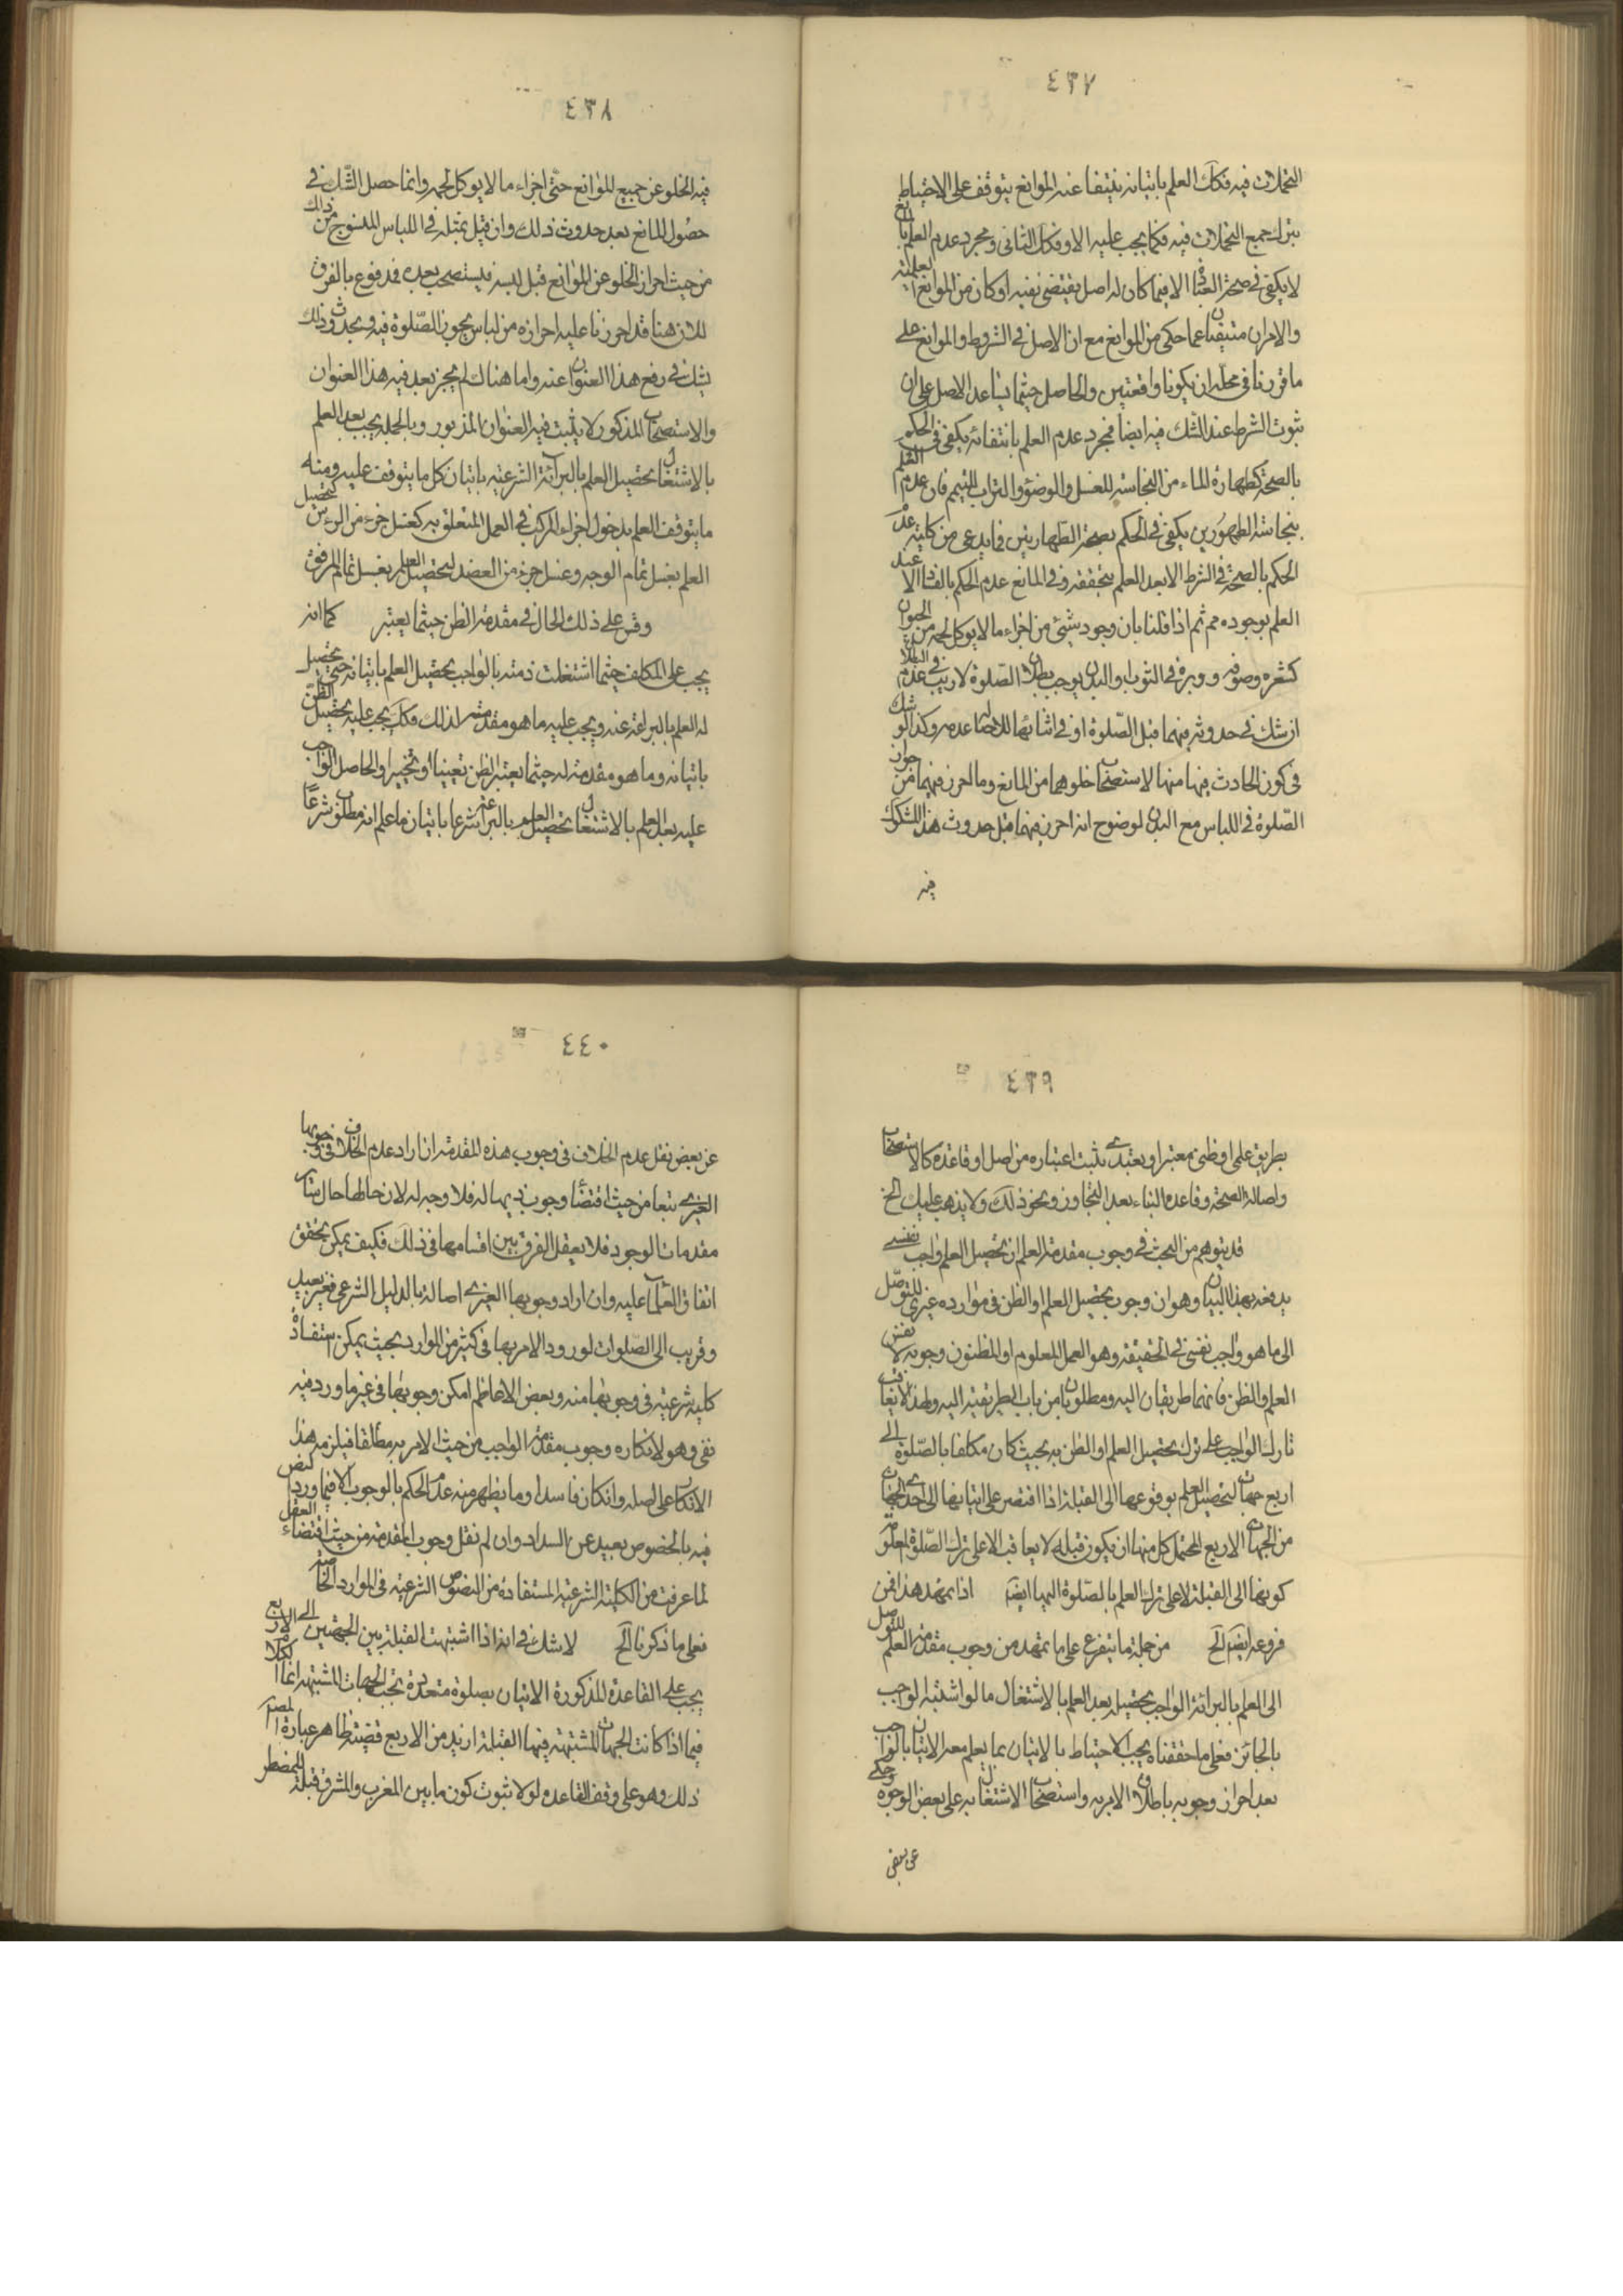 ٤٣٧
التخلات فيه فكك العلم باتيانه بنيتفا عند الموانع يتوقف على الاحتياط
بترك جميع التخلات فيه فكما يجب عليه الاو فكك الثانى ومجرد عدم العلم بالمانع
لا يكفى فى صحة العبا الا فيما كان له اصل يقتضى نفيه او كان من الموانع العلمية
والامران منتيفيان عما حكى من الموانع مع ان الاصل فى الشروط والموانع على
ما قررنا فى محله ان يكونا واقعتين والحاصل حيثما يساعد الاصل على ان
ثبوت الشرط عند الشك فيه ايضا فمجرد عدم العلم بانتفائه يكفى فى الحكم
بالصحة كطهارة الماء من النجاسة للغسل والوضوء والتراب للتيمم فان عدم العلم
بنجاسة الطهورين يكفى فى الحكم بصحة الطهارتين فما يدعى من كلية عدم
الحكم بالصحة فى الشرط الا بعد العلم بتحققه وفى المانع عدم الحكم بالفسا الا عند
العلم بوجوده مم ثم اذا قلنا بان وجود شئ من اجزاء ما لا يوكل لحمه من الحيوان
كشعره وصوفه ووبره فى الثوب او البدن يوجب بطلان الصلوة لا ريب فى عدم البطلان
ان شك فى حدوثه فيهما قبل الصلوة او فى اثنائها للاصا عدمه وكذا لو شك
فى كون الحادث فيها منها لاستصحا خلوهما من المانع وما احرز فيهما من جواز
الصلوة فى اللباس مع البدن لوضوح انه احرز فيهما قبل حدوث هذا المشكوك
فيه
٤٣٨
فيه الخلو عن جميع الموانع حتى اجزاء ما لا يوكل لحمه وانما حصل الشك فى
حصول المانع بعد حدوث ذلك وان قيل بمثله فى اللباس المنسوج من ذلك
من حيث احراز الخلو عن الموانع قبل لبسه فيستصحب بعده فمدفوع بالفرق
للان هنا قد احرزنا عليه احرازه من لباس يجوز الصلوة فيه وبحدوث ذلك
يشك فى رفع هذا العنوان عنه واما هناك لم يحرز بعد فيه هذا العنوان
والاستصحاب المذكور لا يثبت فيه العنوان المزبور وبالجملة يجب بعد العلم
بالاشتغال تحصيل العلم بالبرائة الشرعية باتيان كل ما يتوقف عليه ومنه
ما يتوقف العلم بدخول اجزاء المركب فى العمل المتعلق به كغسل جزء من الرءس لتحصيل
العلم بغسل تمام الوجه وغسل جزء من العضد لتحصيل العلم بغسل تمام المرفق
وقس على ذلك الحال فى مقدمة الظن حيثما يعتبر كما انه
يجب على المكلف حيثما اشتغلت ذمته بالواجب تحصيل العلم باتيانه حتى تحصيل
له العلم بالبرائة عنه ويجب عليه ما هو مقدمته لذلك فكك يجب عليه تحصيل الظن
باتيانه وما هو مقدمته له حيثما يعتبر الظن تعيينا او تخييرا والحاصل الواجب
عليه بعد العلم بالاشتغال تحصيل العلم بالبرائة شرعا باتيان ما علم انه مطلوب شرعا
٤٣٩
بطريق علمى او ظنى معتبر او بعتبدى يثبت اعتباره من اصل او قاعدة كالاستصحاب
واصالة الصحة وقاعدة البناء بعد التجاوز ونحو ذلك ولا يذهب عليك الخ
قد يتوهم من البحث فى وجوب مقدمة العلم ان تحصيل العلم واجب نفسى
يدفعه بهذا البيان وهو ان وجوب تحصيل العلم او الظن فى موارده غيرى للتوصل
الى ما هو واجب نفسى فى الحقيقة وهو العمل المعلوم او المظنون وجوبه لا نفس
العلم والظن فانهما طريقان اليه ومطلوبان من باب الطريقية اليه ولهذا لا يعاقب
تارك الواجب على ترك تحصيل العلم او الظن به بحيث كان مكلفا بالصلوة الى
اربع جهات لتحصيل العلم بوقوعها الى القبلة اذا اقتصر على اتيانها الى احدى الجهات
من الجهات الاربع المحتمل كل منها ان يكون قبلة لا يعاقب الا على ترك الصلوة المعلومة
كونها الى القبلة لا على ترك العلم بالصلوة اليها ايضا اذا تمهد هذا فمن
فروعه ايضا الخ من جملة ما يتفرع على ما تمهد من وجوب مقدمة العلم للتوصل
الى العلم بالبرائة الواجب تحصيله بعد العلم بالاشتغال ما لو اشتبه الواجب
بالجائز فعلى ما حققناه يجب الاحتياط بالاتيان بما يعلم معه الاتيان بالواجب
بعد احراز وجوبه باطلاق الامر به واستصحاب الاشتغال به على بعض الوجوه وحكى
عن بعض
٤٤٠
عن بعض نقل عدم الخلاف فى وجوب هذه المقدمة ان اراد عدم الخلاف فى وجوبها
الغيرى تبعا من حيث اقتضاء وجوب ذيها له فلا وجه له لان حالها حال سائر
مقدمات الوجود فلا يعقل الفرق بين اقسامها فى ذلك فكيف يمكن تحقق
اتفاق العلماء عليه وان اراد وجوبها الغيرى اصالة بالدليل الشرعى فغير بعيد
وقريب الى الصلوات لورود الامر بها فى كثير من الموارد بحيث يمكن استفادة
كلية شرعية فى وجوبها منه وبعض الاعاظم امكن وجوبها فى غير ما ورد فيه
نفى وهو لانكاره وجوب مقدمة الواجب من حيث الامر به مطلقا فيلزمه هذا
الانكار على اصله وان كان فاسدا وما يظهر منه عدم الحكم بالوجوب الا فيما ورد النص
فيه بالخصوص بعيد عن السداد وان لم نقل وجوب المقدمة من حيث اقتضاء العقل
لما عرفت من الكلية الشرعية المستفادة من النصوص الشرعية فى الموارد الخاصة
فعلى ما ذكرنا الخ لا شك فى انه اذا اشتبهت القبلة بين الجهتين الى الاربع
يجب على القاعدة المذكورة الاتيان بصلوة متعددة بحسب الجهات المشتبهة انما الكلام
فيما اذا كانت الجهات المشتبهة فيها القبلة ازيد من الاربع قضية ظاهر عبارة المصنف
ذلك وهو على وفق القاعدة لولا ثبوت كون ما بين المغرب والمشرق قبلة للمضطر